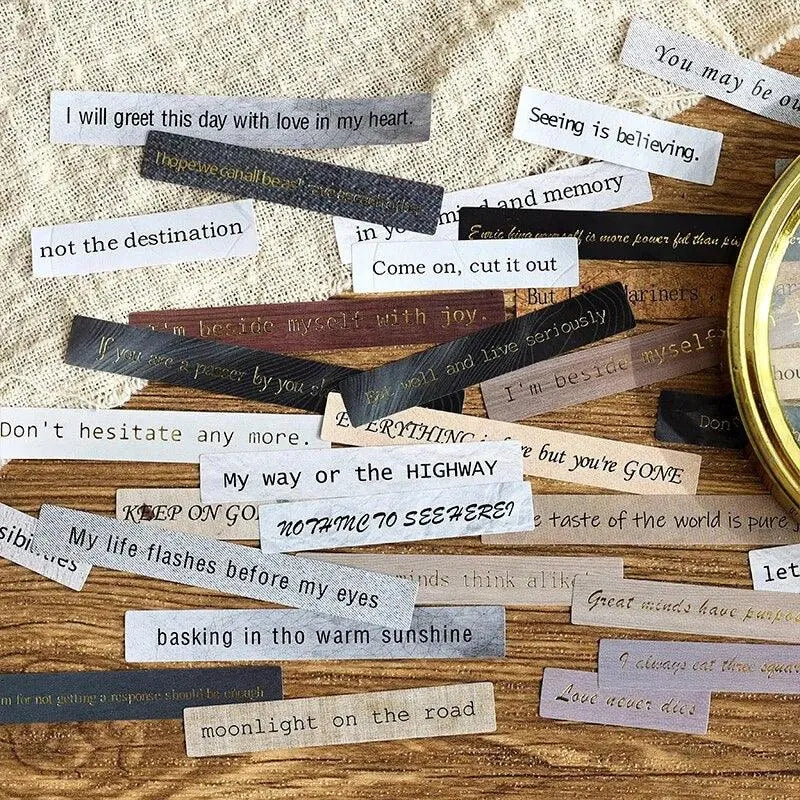 You may be
I will greet this day with love in my heart.
Seeing is believing.
I hope we can all be as
in your mind and memory
not the destination
is more power ful than
Come on, cut it out
But Mariners
I'm beside myself with joy.
If you are a passer by you
Eat well and live seriously
I'm beside myself
Don't
Don't hesitate any more.
EVERYTHING is here but you're GONE
My way or the HIGHWAY
KEEP ON
NOTHINC TO SEE HERE!
taste of the world is pure
My life flashes before my eyes
minds think alike
let
Great minds have
basking in tho warm sunshine
I always eat three
for not getting a response should be enough
Love never dies
moonlight on the road